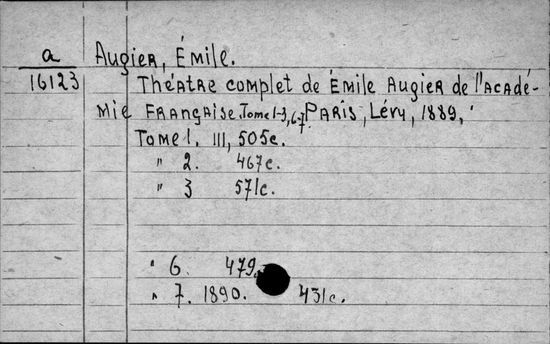 a Augier, Émile.
16123 Théâtre complet de Émile Augier de l'Acadé-
mie Française. Tome 1-3, 6-7. Paris, Lévy, 1889,
Tome 1. III, 505c.
" 2. 467c.
" 3 571c.
" 6. 479
" 7. 1890. 431c.